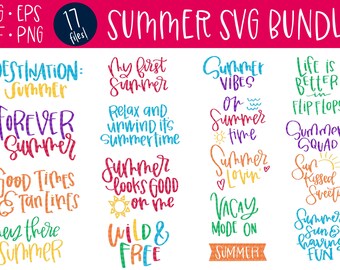 EPS
PNG
17
files!
SUMMER SVG BUNDL
DESTINATION:
Summer
FOREVER
Summer
GOOD TIMES
& TAN LINES
Hey there
SUMMER
My first
SUMMER
Relax and
unwind it's
summertime
Summer
looks GOOD
on me
WILD &
FREE
SUMMER
VIBES
on
Summer
time
Summer
Lovin'
VACAY
MODE ON
SUMMER
LIFE is
BETTER
in
FLIPFLOPS
Summer
SQUAD
Sun
Kissed
Sweetie
Summer
Sun &
having
FUN